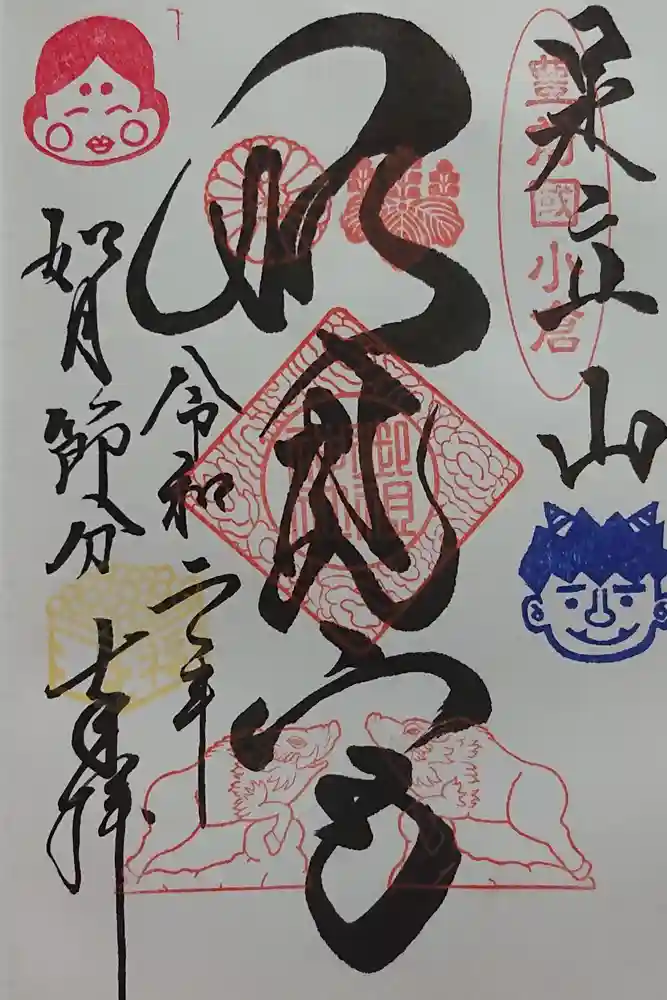 足立山
豊前國小倉
妙見宮
令和二年
如月節分
奉拝